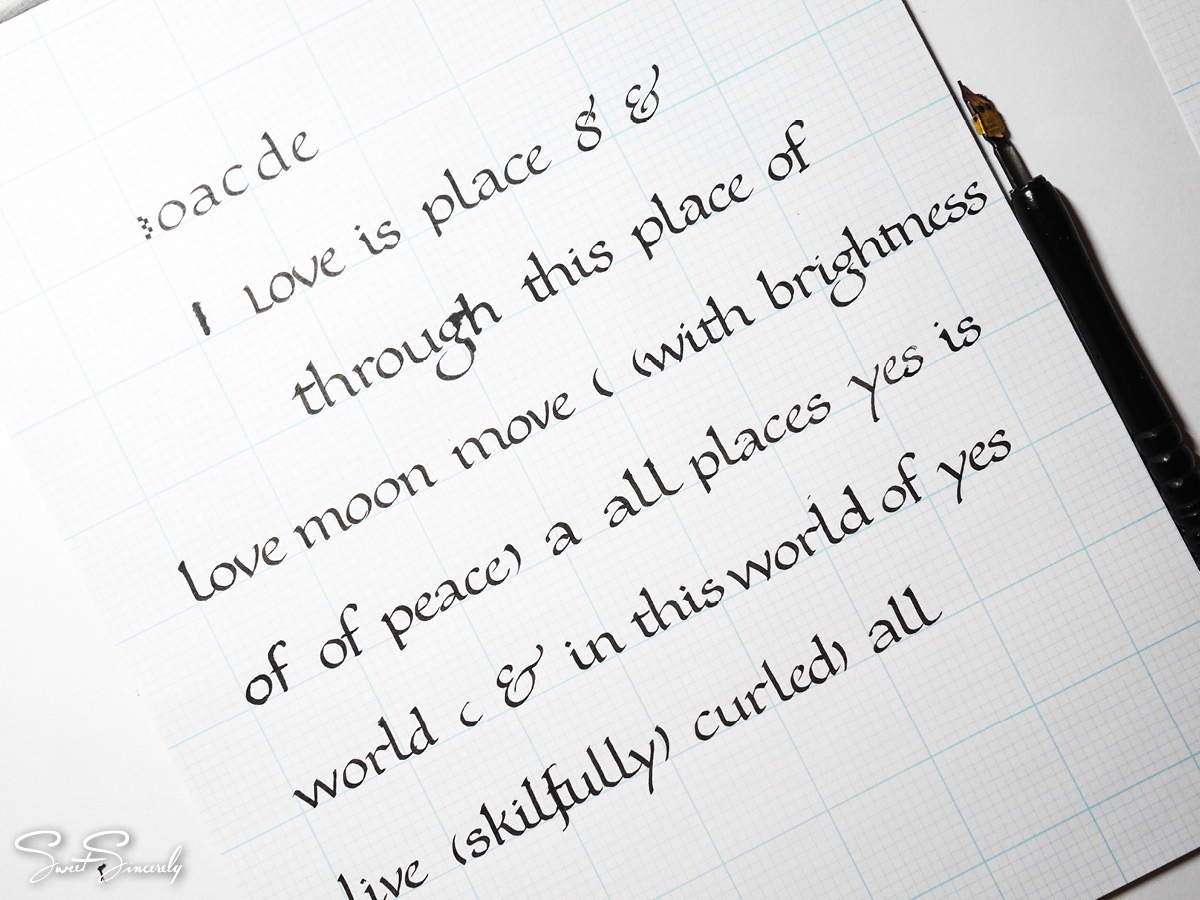 oacde
l Love is place & &
through this place of
love moon move ( (with brightness
of of peace) a all places yes is
world ( & in this world of yes
live (skilfully) curled) all
Sweet Sincerely